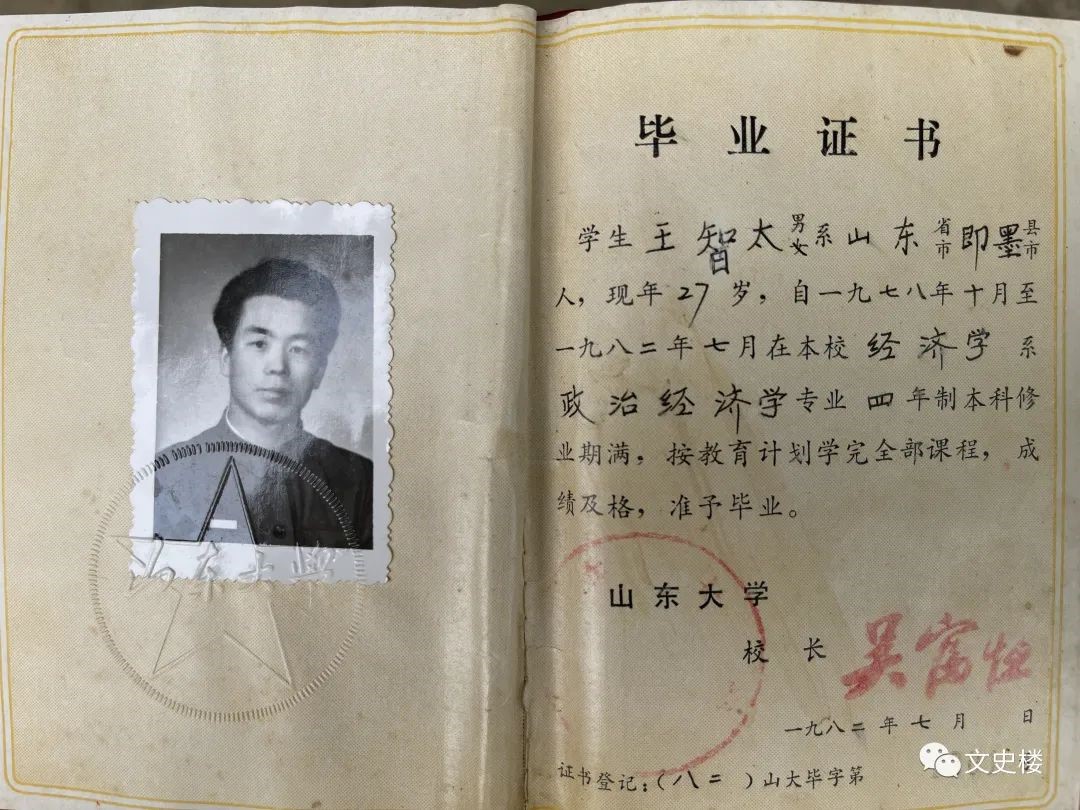 山东大学
毕业证书
学生王智太男女系山东省市即墨县市
人，现年27岁，自一九七八年十月至
一九八二年七月在本校经济学系
政治经济学专业四年制本科修
业期满，按教育计划学完全部课程，成
绩及格，准予毕业。
山东大学
校长 吴富恒
一九八二年七月 日
证书登记：（八二）山大毕字第
文史楼